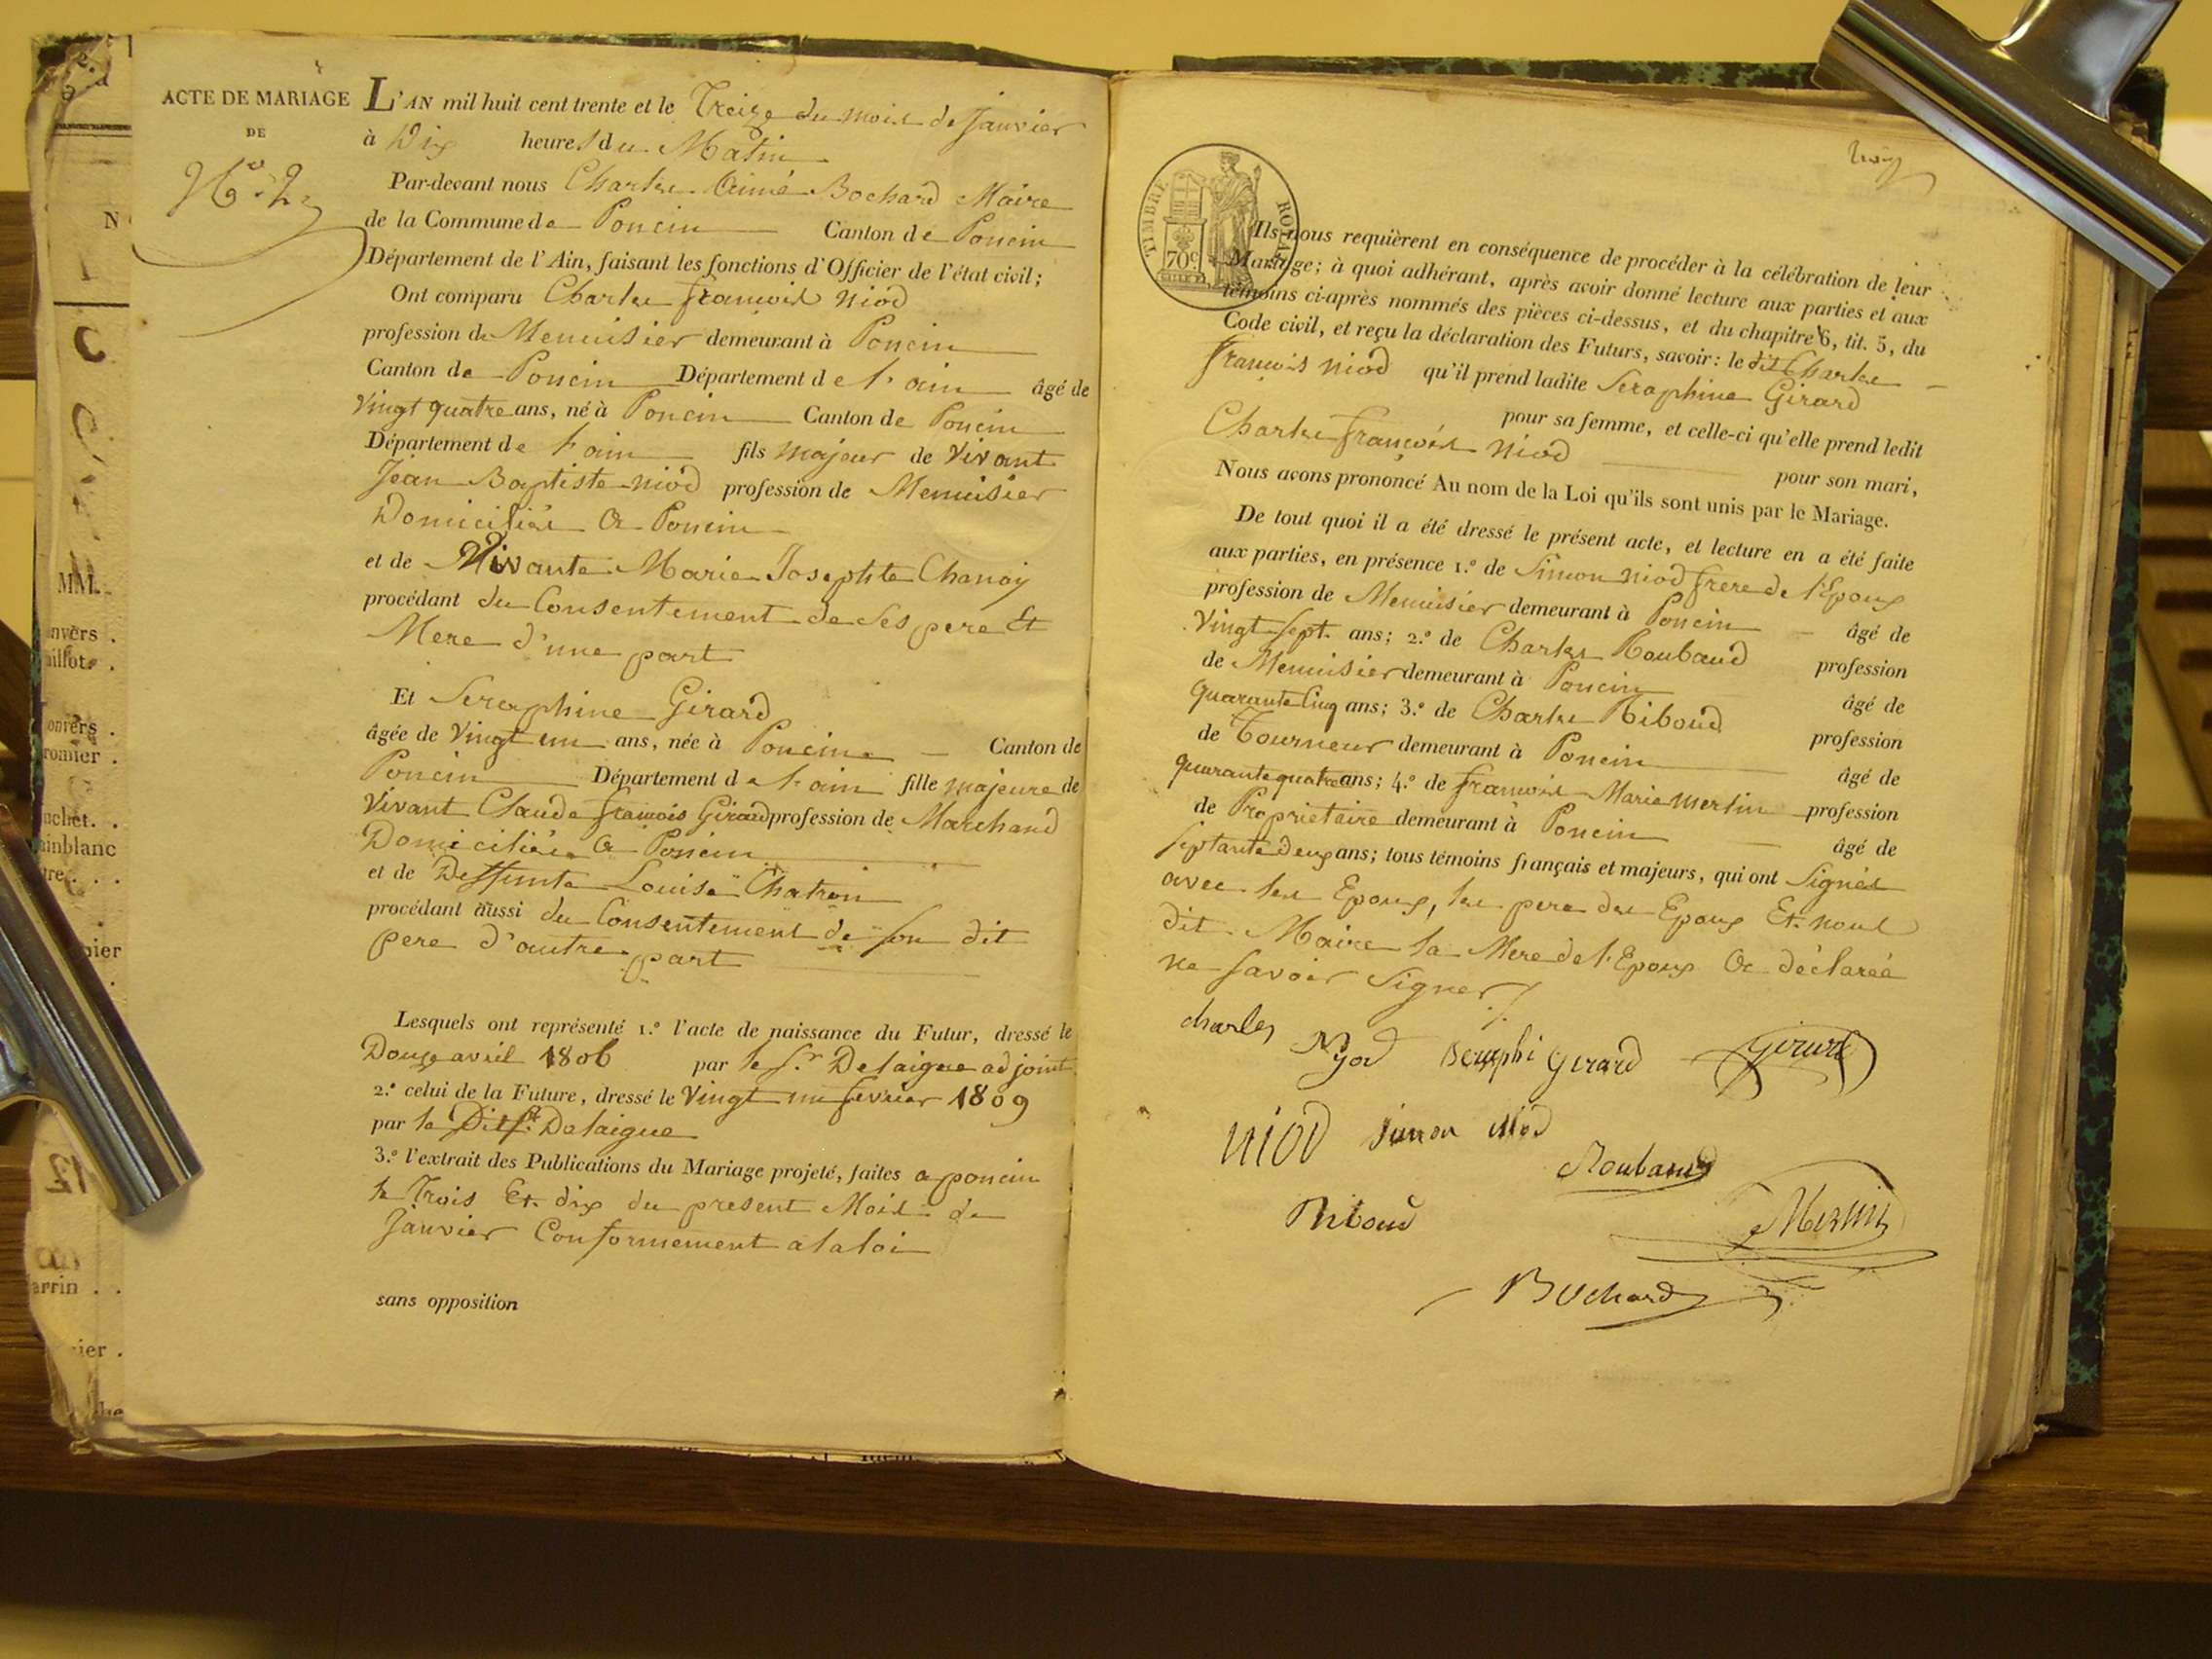 ACTE DE MARIAGE
DE
N.º 2
L'AN mil huit cent trente et le Treize du mois de Janvier
à Dix heures du Matin
Par-devant nous Charles Aimé Bochard Maire
de la Commune de Poncin Canton de Poncin
Département de l'Ain, faisant les fonctions d'Officier de l'état civil;
Ont comparu Charles françois niod
profession de Menuisier demeurant à Poncin
Canton de Poncin Département de l'ain âgé de
Vingt quatre ans, né à Poncin Canton de Poncin
Département de l'ain fils majeur de Vivant
Jean Baptiste niod profession de Menuisier
Domicilié a Poncin
et de Vivante Marie Josephte Chanay
procédant du Consentement de Ses pere Et
Mere d'une part
Et Seraphine Girard
âgée de Vingt un ans, née à Poncin Canton de
Poncin Département de l'ain fille majeure de
Vivant Claude françois Girard profession de Marchand
Domicilié a Poncin
et de Deffunte Louise Chatron
procédant aussi du Consentement de son dit
pere d'autre part
Lesquels ont représenté 1.º l'acte de naissance du Futur, dressé le
Douze avril 1806 par le Sr. Delaigue adjoint
2.º celui de la Future, dressé le Vingt un fevrier 1809
par le Dit Sr. Delaigue
3.º l'extrait des Publications du Mariage projeté, faites a poncin
le Trois Et dix du present Mois de
Janvier Conformement a la loi
sans opposition
TIMBRE ROYAL
70c
Ils nous requièrent en conséquence de procéder à la célébration de leur
Mariage; à quoi adhérant, après avoir donné lecture aux parties et aux
témoins ci-après nommés des pièces ci-dessus, et du chapitre 6, tit. 5, du
Code civil, et reçu la déclaration des Futurs, savoir: le dit Charles
françois niod qu'il prend ladite Seraphine Girard
pour sa femme, et celle-ci qu'elle prend ledit
Charles françois niod pour son mari,
Nous avons prononcé Au nom de la Loi qu'ils sont unis par le Mariage.
De tout quoi il a été dressé le présent acte, et lecture en a été faite
aux parties, en présence 1.º de Simon niod frere de l'Epoux
profession de Menuisier demeurant à Poncin âgé de
Vingt Sept ans; 2.º de Charles Roubaud profession
de Menuisier demeurant à Poncin âgé de
quarante Cinq ans; 3.º de Charles Riboud profession
de Tourneur demeurant à Poncin âgé de
quarante quatre ans; 4.º de françois Marie Merlin profession
de Propriétaire demeurant à Poncin âgé de
septante deux ans; tous témoins français et majeurs, qui ont Signés
avec les Epoux, les pere des Epoux Et nous
dit Maire la Mere de l'Epoux a déclaréé
ne savoir Signer
charles Nyod Seraphi Gerard Girard
niod Simon Niod
Roubaud
Riboud Merlin
Bochard